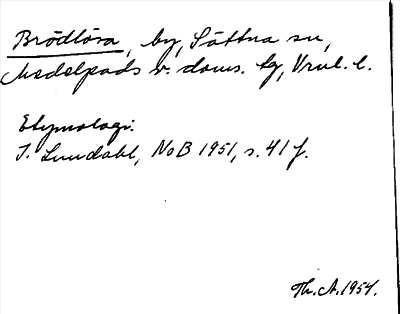 Brödlösa, by, Sättna sn,
Medelpads v. doms. tg, Vnl. l.
Etymologi.
I. Lundahl, NoB 1951, s. 41 f.
Th. A. 1954.